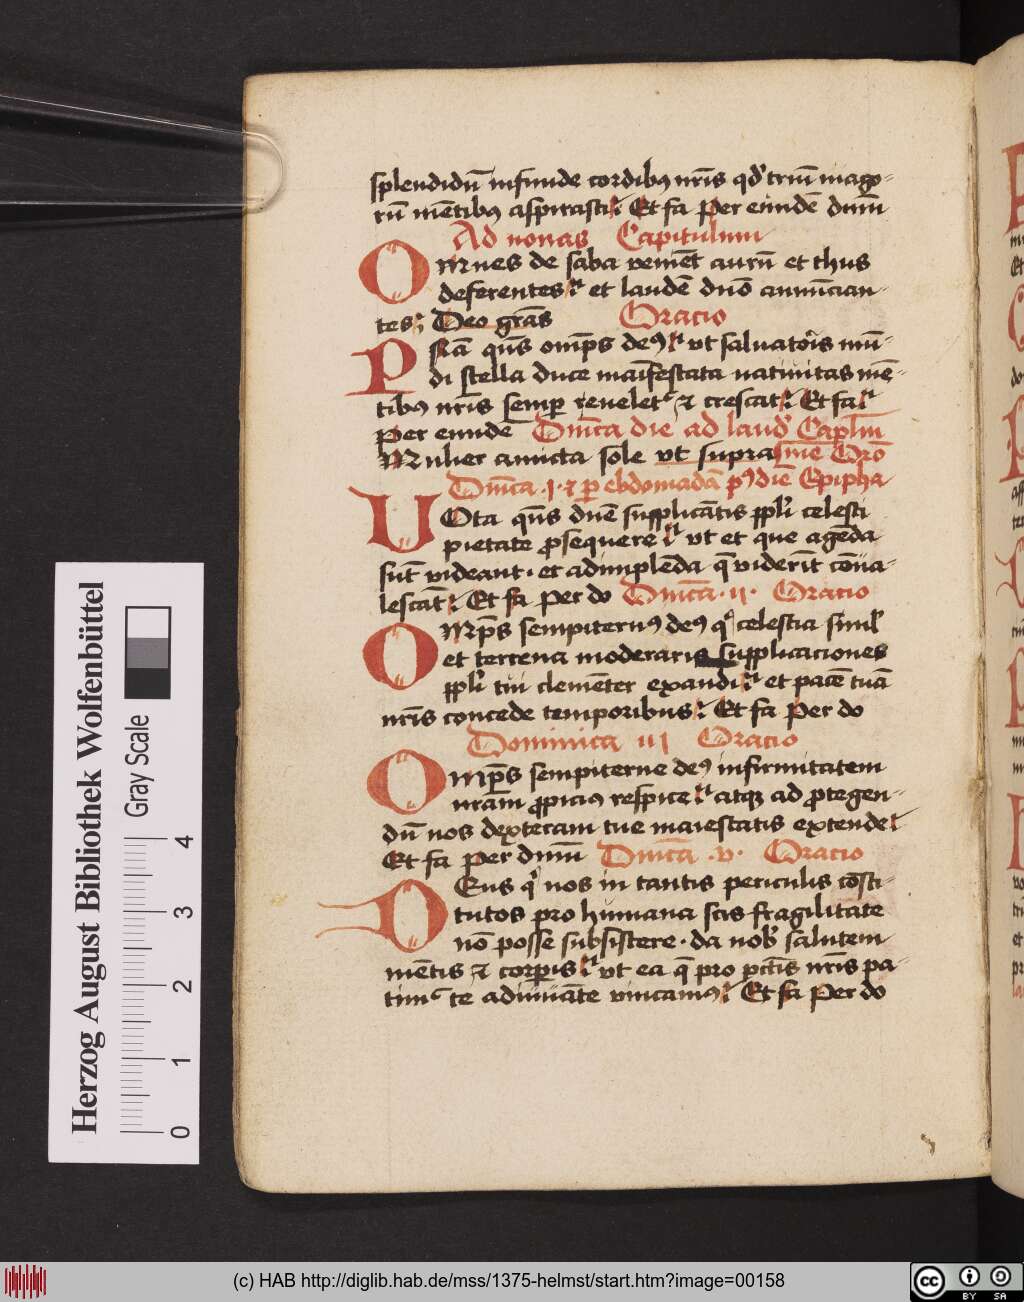 splendidū infunde cordibꝯ nr̄is qd̓ triū mago-
rū mētibꝯ aspirasti Et fa Per eundē dnm̄
Ad nonas Capitulum
Omnes de saba veniēt aurū et thus
deferentes et laudē dn̄o annūcian-
tes Deo grās Oracio
Prā qs̄ omps̄ deꝯ vt saluator̄is mū-
di stella duce mānifestata natiuitas mē-
tibꝯ nr̄is semp̲ reuelet᷑ ⁊ crescat Et fa
Per eundē Dn̄ica die ad laud̓ Capl̄m
Mulier amicta sole vt supra sine Orō
Dn̄ica .I. ⁊ p̲ ebdomadā pꝯ diē Epipha
UOta qs̄ dn̄e supplicātis ppl̓i celesti
pietate ꝓsequere vt et que agēda
sūt videant. et adimplēda q̄ viderīt cōua-
lescāt Et fa per do Dn̄ica .II. Oracio
OMps̄ sempiternꝯ deꝯ qͥ celestia simul̓
et terrena moderaris supplicaciones
ppl̓i tui clemēter exaudi et pacē tuā
nr̄is concede temporibus Et fa Per do
Dominica III Oracio
Omps̄ sempiterne deꝯ infirmitatem
nram̄ ꝓpiciꝯ respice atqꝫ ad ꝓtegen-
dū nos dexteram tue maiestatis extende
Et fa per dnm̄ Dn̄ica .v. Oracio
DEus qͥ nos in tantis periculis cōsti-
tutos pro humana scis fragilitate
nō posse subsistere. da nob̓ salutem
mētis ⁊ corp̲is vt ea q̄ pro pct̄is nr̄is pa-
timꝯ te adiuuāte vincamꝯ Et fa Per do
Herzog August Bibliothek Wolfenbüttel
Gray Scale
0 1 2 3 4
(c) HAB http://diglib.hab.de/mss/1375-helmst/start.htm?image=00158
cc BY SA